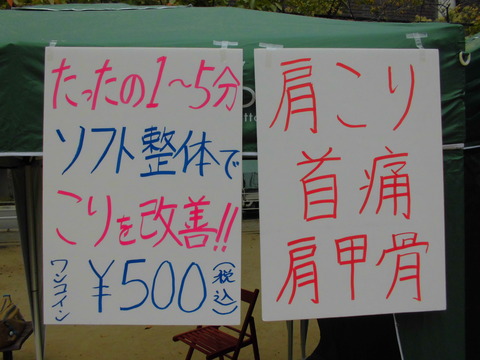 たったの1〜5分
ソフト整体で
こりを改善!!
ワンコイン ¥500(税込)
肩こり
首痛
肩甲骨